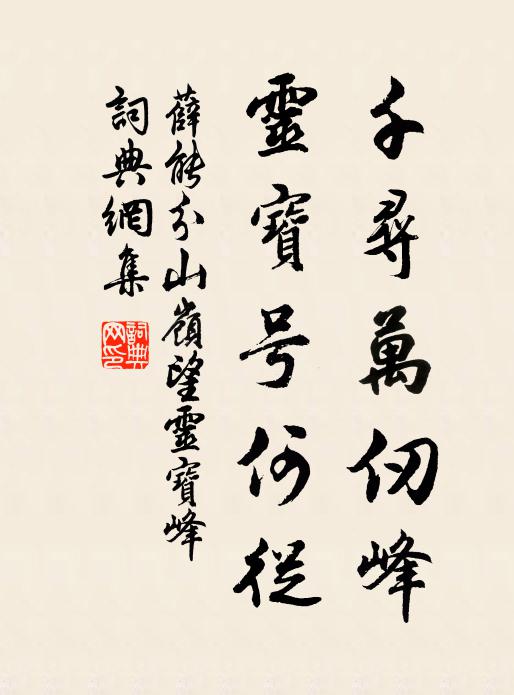 千尋萬仞峰
靈寶号何從
薛能分山嶺望靈寶峰
詞典網集
詞典
网印